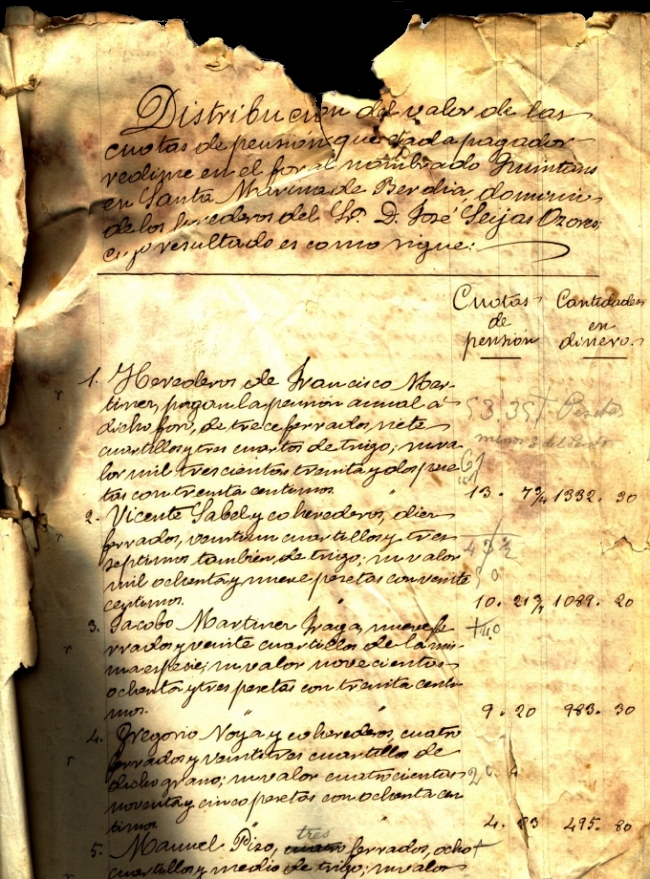 Distribucion del valor de las
cuotas de pensión que cada pagador
redime en el foral nombrado Quintans
en Santa Marina de Berdia, dominio
de los herederos del Sr. D. José Seijas Ozores
cuyo resultado es como sigue:
Cuotas de pensión
Cantidades en dinero.
1. Herederos de Francisco Mar-
tinez, pagan la pensión anual á
dicho foro, de trece ferrados, siete
cuartillos y tres cuartos de trigo; su va-
lor mil trescientas treinta y dos pese-
tas con treinta centimos. " 13. 7¾ 1332. 30
2. Vicente Sabel y coherederos, diez
ferrados, veintiun cuartillos y tres
septimos tambien de trigo; su valor
mil ochenta y nueve pesetas con veinte
centimos. " 10. 21 3/7 1089. 20
3. Jacobo Martinez Fraga, nueve fe-
rrados y veinte cuartillos de la mis-
ma especie; su valor novecientas
ochenta y tres pesetas con treinta centi-
mos. " " 9. 20 983. 30
4. Gregorio Noya y coherederos, cuatro
ferrados y veintitres cuartillos de
dicho grano; su valor cuatrocientas
noventa y cinco pesetas con ochenta cen-
timos. " 4. 23 495. 80
5. Manuel Pizo, tres ferrados, ocho
cuartillos y medio de trigo; su valor